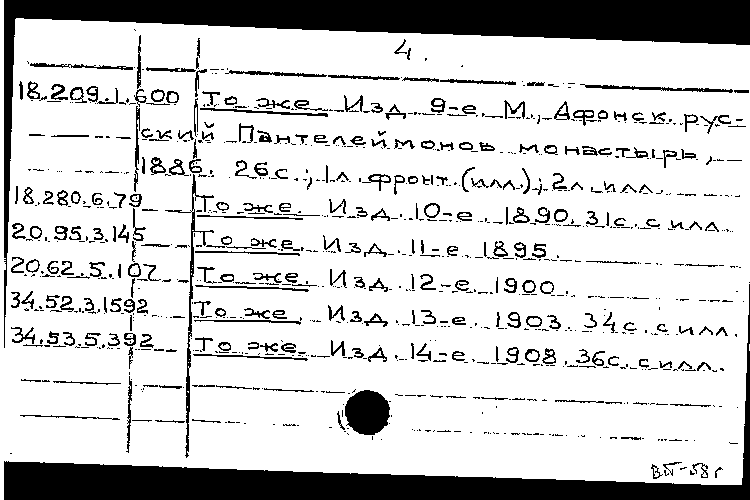 4.
18.209.1.600 То же. Изд. 9-е. М., Афонск. рус-
ский Пантелеймонов монастырь,
1886. 26с.; 1л. фронт. (илл.); 2л. илл.
18.280.6.79 То же. Изд. 10-е. 1890. 31с. с илл.
20.95.3.145 То же. Изд. 11-е. 1895.
20.62.5.107 То же. Изд. 12-е. 1900.
34.52.3.1592 То же. Изд. 13-е. 1903. 34с. с илл.
34.53.5.392 То же. Изд. 14-е. 1908. 36с. с илл.